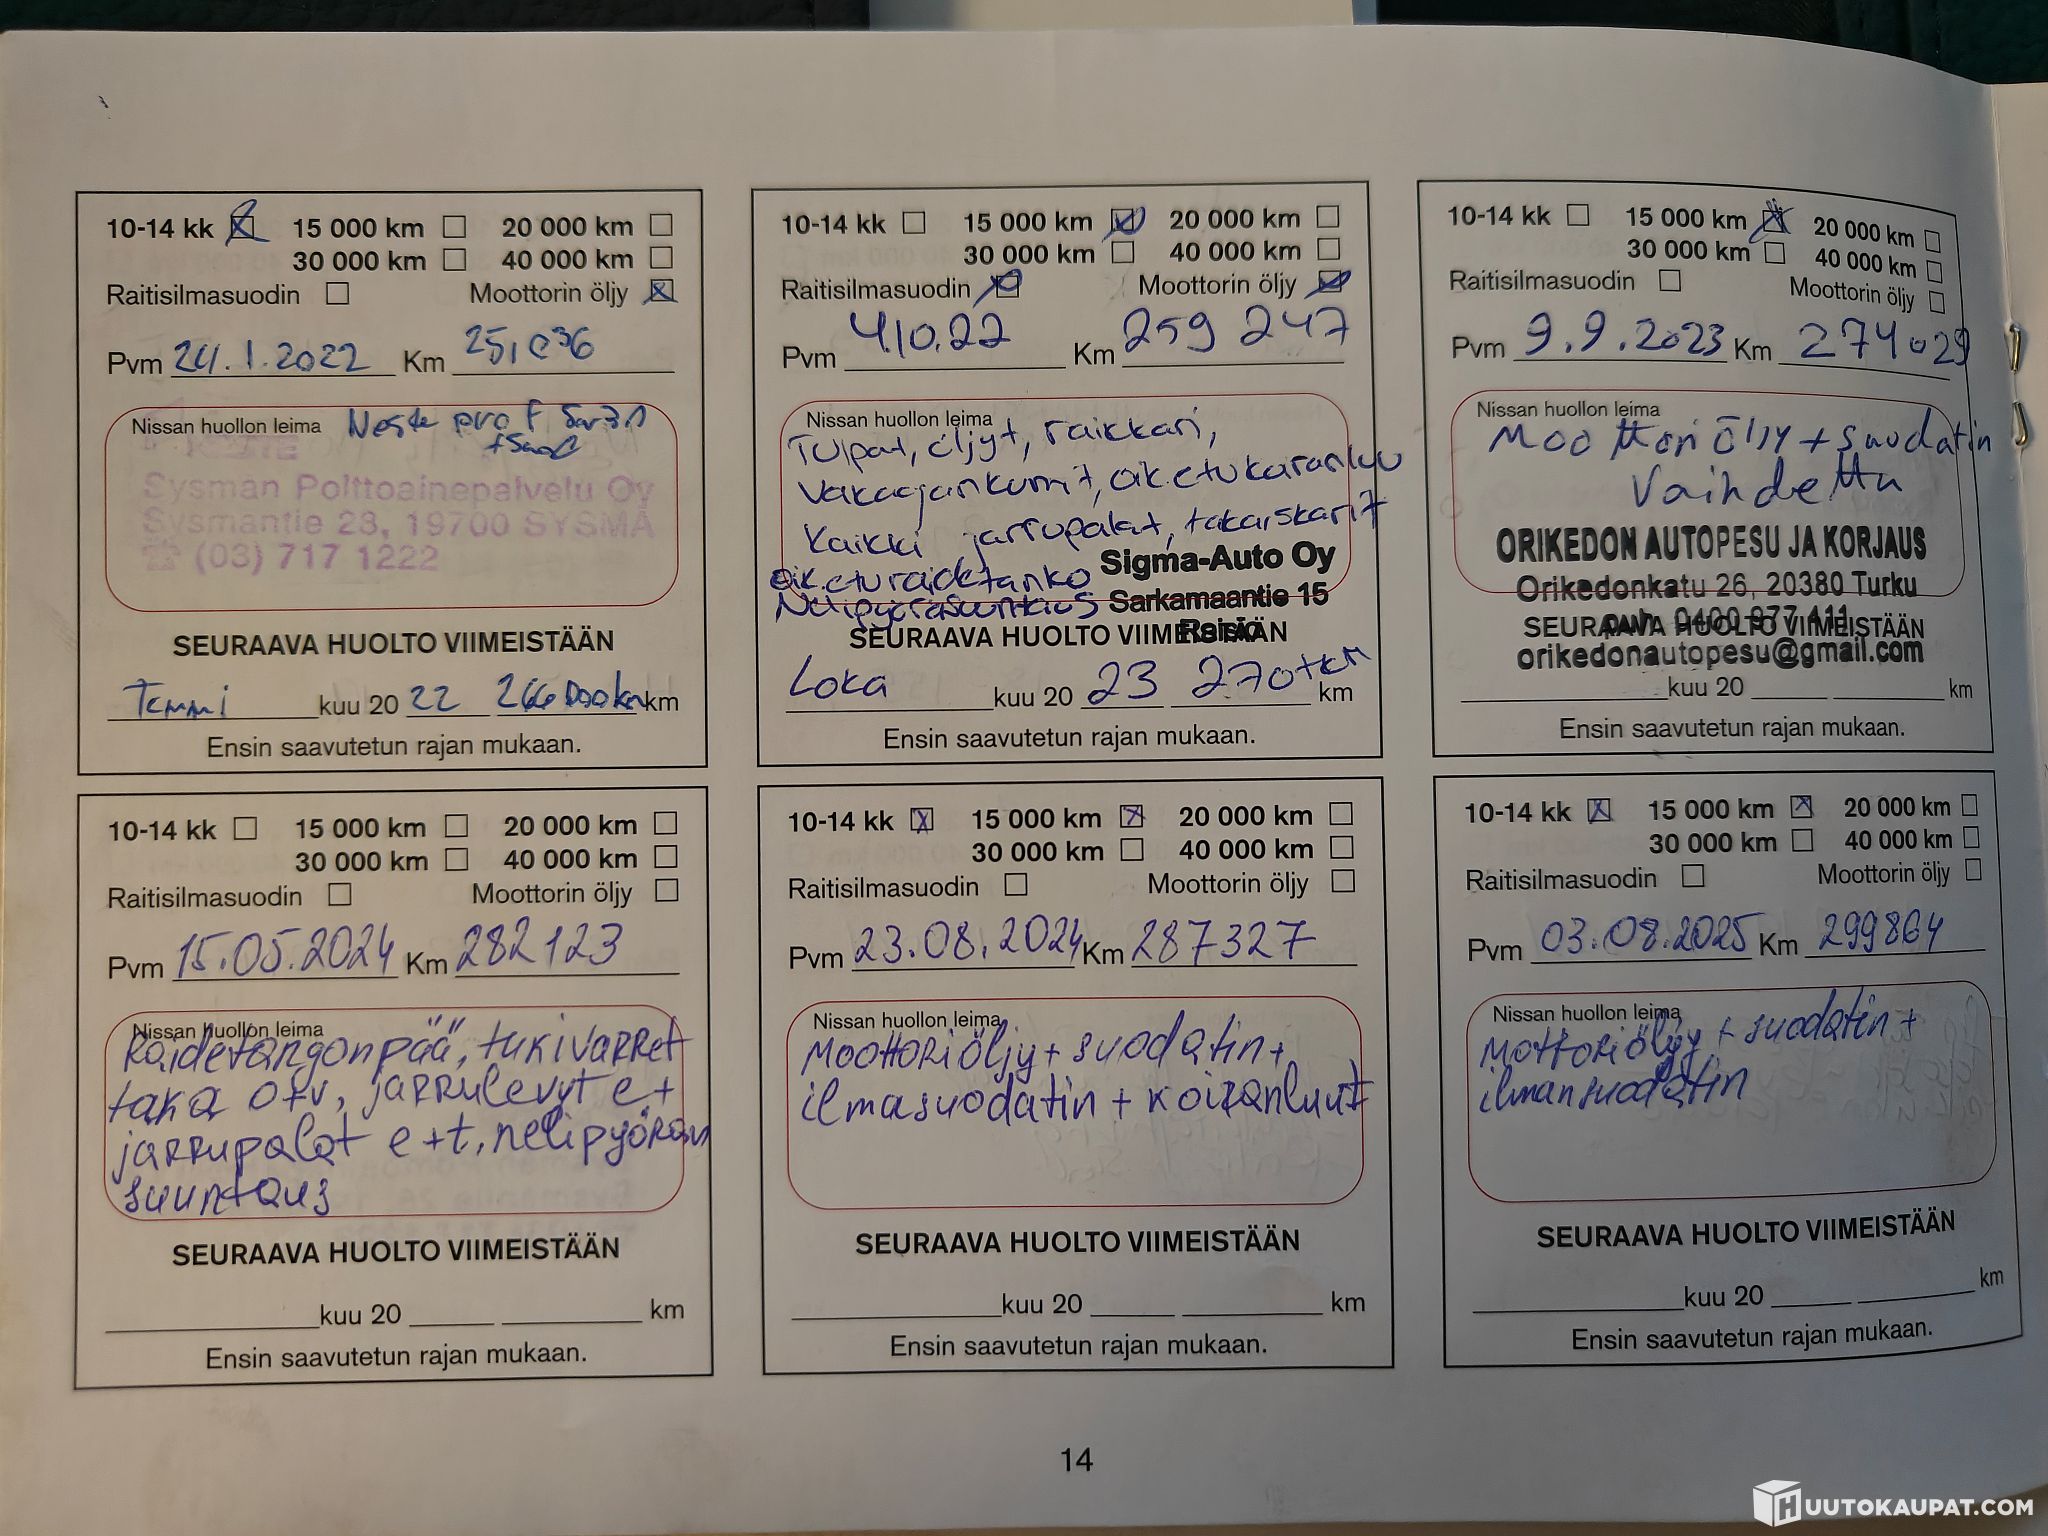 10-14 kk 15 000 km 20 000 km
30 000 km 40 000 km
Raitisilmasuodin Moottorin öljy
Pvm 24.1.2022 Km 251036
Nissan huollon leima Neste pro F 5w30
Sysmän Polttoainepalvelu Oy
Sysmäntie 28, 19700 SYSMÄ
☎ (03) 717 1222
SEURAAVA HUOLTO VIIMEISTÄÄN
Tammi kuu 20 22 266000km km
Ensin saavutetun rajan mukaan.
10-14 kk 15 000 km 20 000 km
30 000 km 40 000 km
Raitisilmasuodin Moottorin öljy
Pvm 4.10.22 Km 259 247
Nissan huollon leima
Tulpat, öljyt, raikkari,
Vakaajankumit, oik.etukaranluu
Kaikki jarrupalat, takaiskarit
oik.eturaidetanko Sigma-Auto Oy
Nelipyöräsuuntaus Sarkamaantie 15
Raisio
SEURAAVA HUOLTO VIIMEISTÄÄN
Loka kuu 20 23 270tkm km
Ensin saavutetun rajan mukaan.
10-14 kk 15 000 km 20 000 km
30 000 km 40 000 km
Raitisilmasuodin Moottorin öljy
Pvm 9.9.2023 Km 274029
Nissan huollon leima
Moottori Öljy + suodatin
Vaihdettu
ORIKEDON AUTOPESU JA KORJAUS
Orikedonkatu 26, 20380 Turku
puh. 0400 977 411
SEURAAVA HUOLTO VIIMEISTÄÄN
orikedonautopesu@gmail.com
kuu 20 km
Ensin saavutetun rajan mukaan.
10-14 kk 15 000 km 20 000 km
30 000 km 40 000 km
Raitisilmasuodin Moottorin öljy
Pvm 15.05.2024 Km 282123
Nissan huollon leima
Raidetangonpää, tukivarret
taka o+v, jarrulevyt e+
jarrupalat e+t, nelipyöran
suuntaus
SEURAAVA HUOLTO VIIMEISTÄÄN
kuu 20 km
Ensin saavutetun rajan mukaan.
10-14 kk 15 000 km 20 000 km
30 000 km 40 000 km
Raitisilmasuodin Moottorin öljy
Pvm 23.08.2024 Km 287327
Nissan huollon leima
Moottoriöljy + suodatin +
ilmasuodatin + koiranluut
SEURAAVA HUOLTO VIIMEISTÄÄN
kuu 20 km
Ensin saavutetun rajan mukaan.
10-14 kk 15 000 km 20 000 km
30 000 km 40 000 km
Raitisilmasuodin Moottorin öljy
Pvm 03.08.2025 Km 299864
Nissan huollon leima
Mottoriöljy + suodatin +
ilmansuodatin
SEURAAVA HUOLTO VIIMEISTÄÄN
kuu 20 km
Ensin saavutetun rajan mukaan.
14
HUUTOKAUPAT.COM